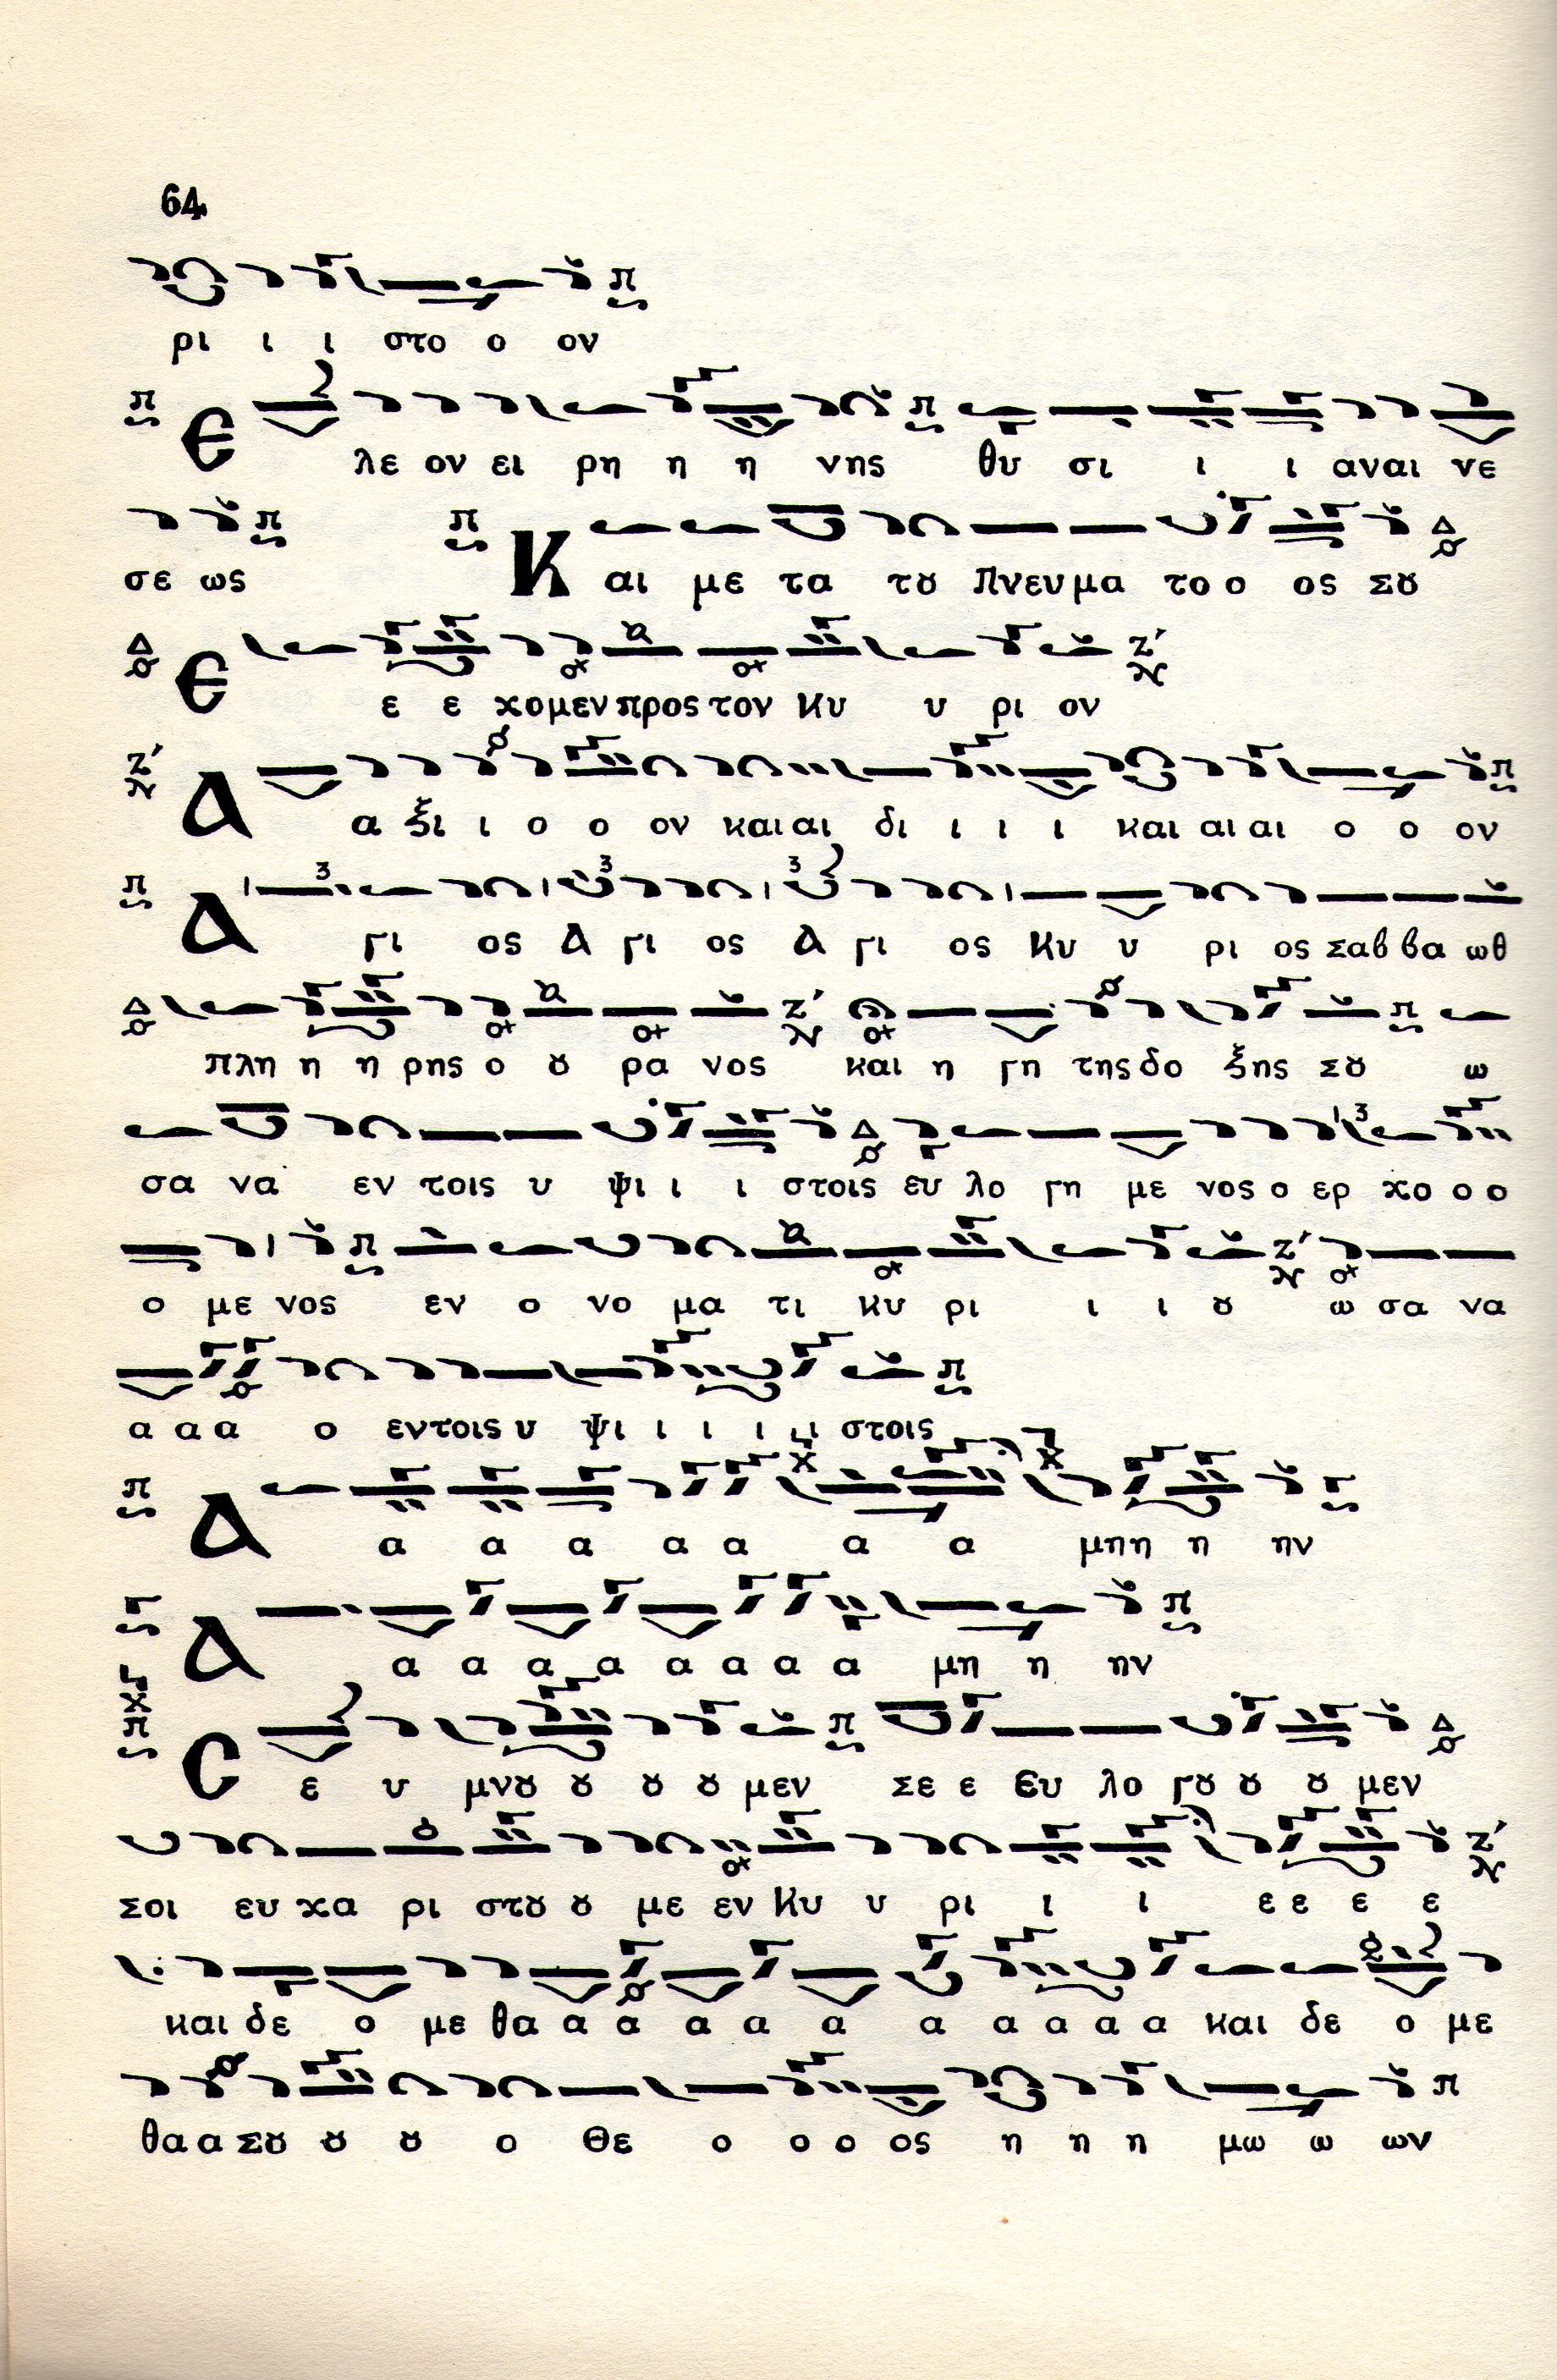 64
ρι ι ι στο ο ον
Ε λε ον ει ρη η η νης θυ σι ι ι αναι νε
σε ως Και με τα τȣ Πνευμα το ο ος Σȣ
Ε ε ε χομεν προς τον Κυ υ ρι ον
Α α ξι ι ο ο ον και αι δι ι ι ι και αι αι ο ο ον
Α γι ος Α γι ος Α γι ος Κυ υ ρι ος σαβ βα ωθ
πλη η η ρης ο ȣ ρα νος και η γη της δο ξης Σȣ ω
σα να εν τοις υ ψι ι ι στοις ευ λο γη με νος ο ερ χο ο ο
ο με νος εν ο νο μα τι κυ ρι ι ι ȣ ω σα να
α α α ο εν τοις υ ψι ι ι ι ι στοις
Α α α α α α α α μη η η ην
Α α α α α α α α α μη η ην
Σε ε υ μνȣ ȣ ȣ ȣ μεν σε ε Ευ λο γȣ ȣ ȣ μεν
σοι ευ χα ρι στȣ ȣ με εν Κυ υ ρι ι ι ε ε ε ε
και δε ο με θα α α α α α α α α α α και δε ο με
θα α α Σȣ ȣ ȣ ο Θε ο ο ο ος η η η μω ω ων